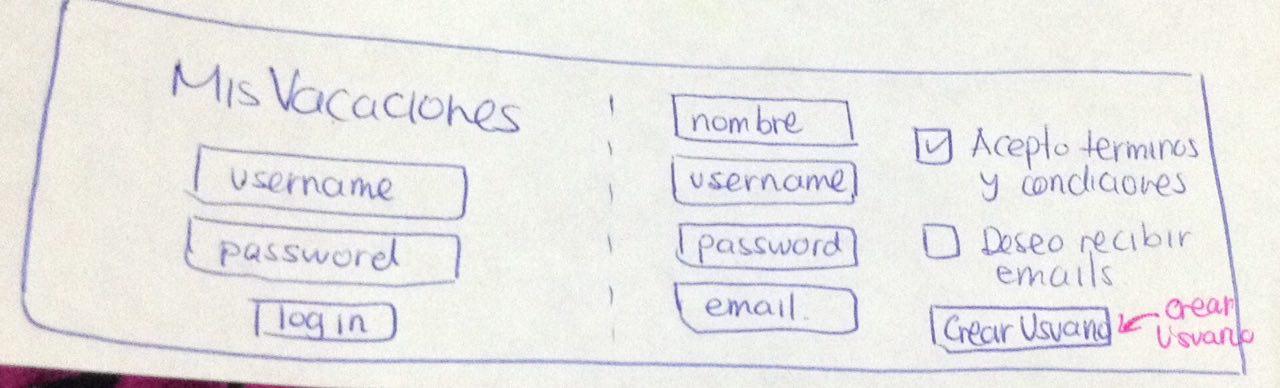 Mis Vacaciones
username
password
log in
nombre
username
password
email.
Acepto terminos
y condiciones
Deseo recibir
emails
Crear Usuario
crear
Usuario